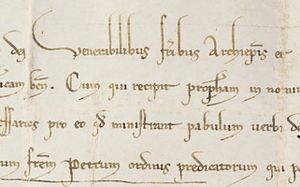 dei Venerabilibus fr̃ibus Archiepĩs et
icam beñ. Cum qui recipit prophetam in nomi
essarios pro eo qđ ministrant pabulum verbi
um fr̃em Petrum ordinis predicatorum qui